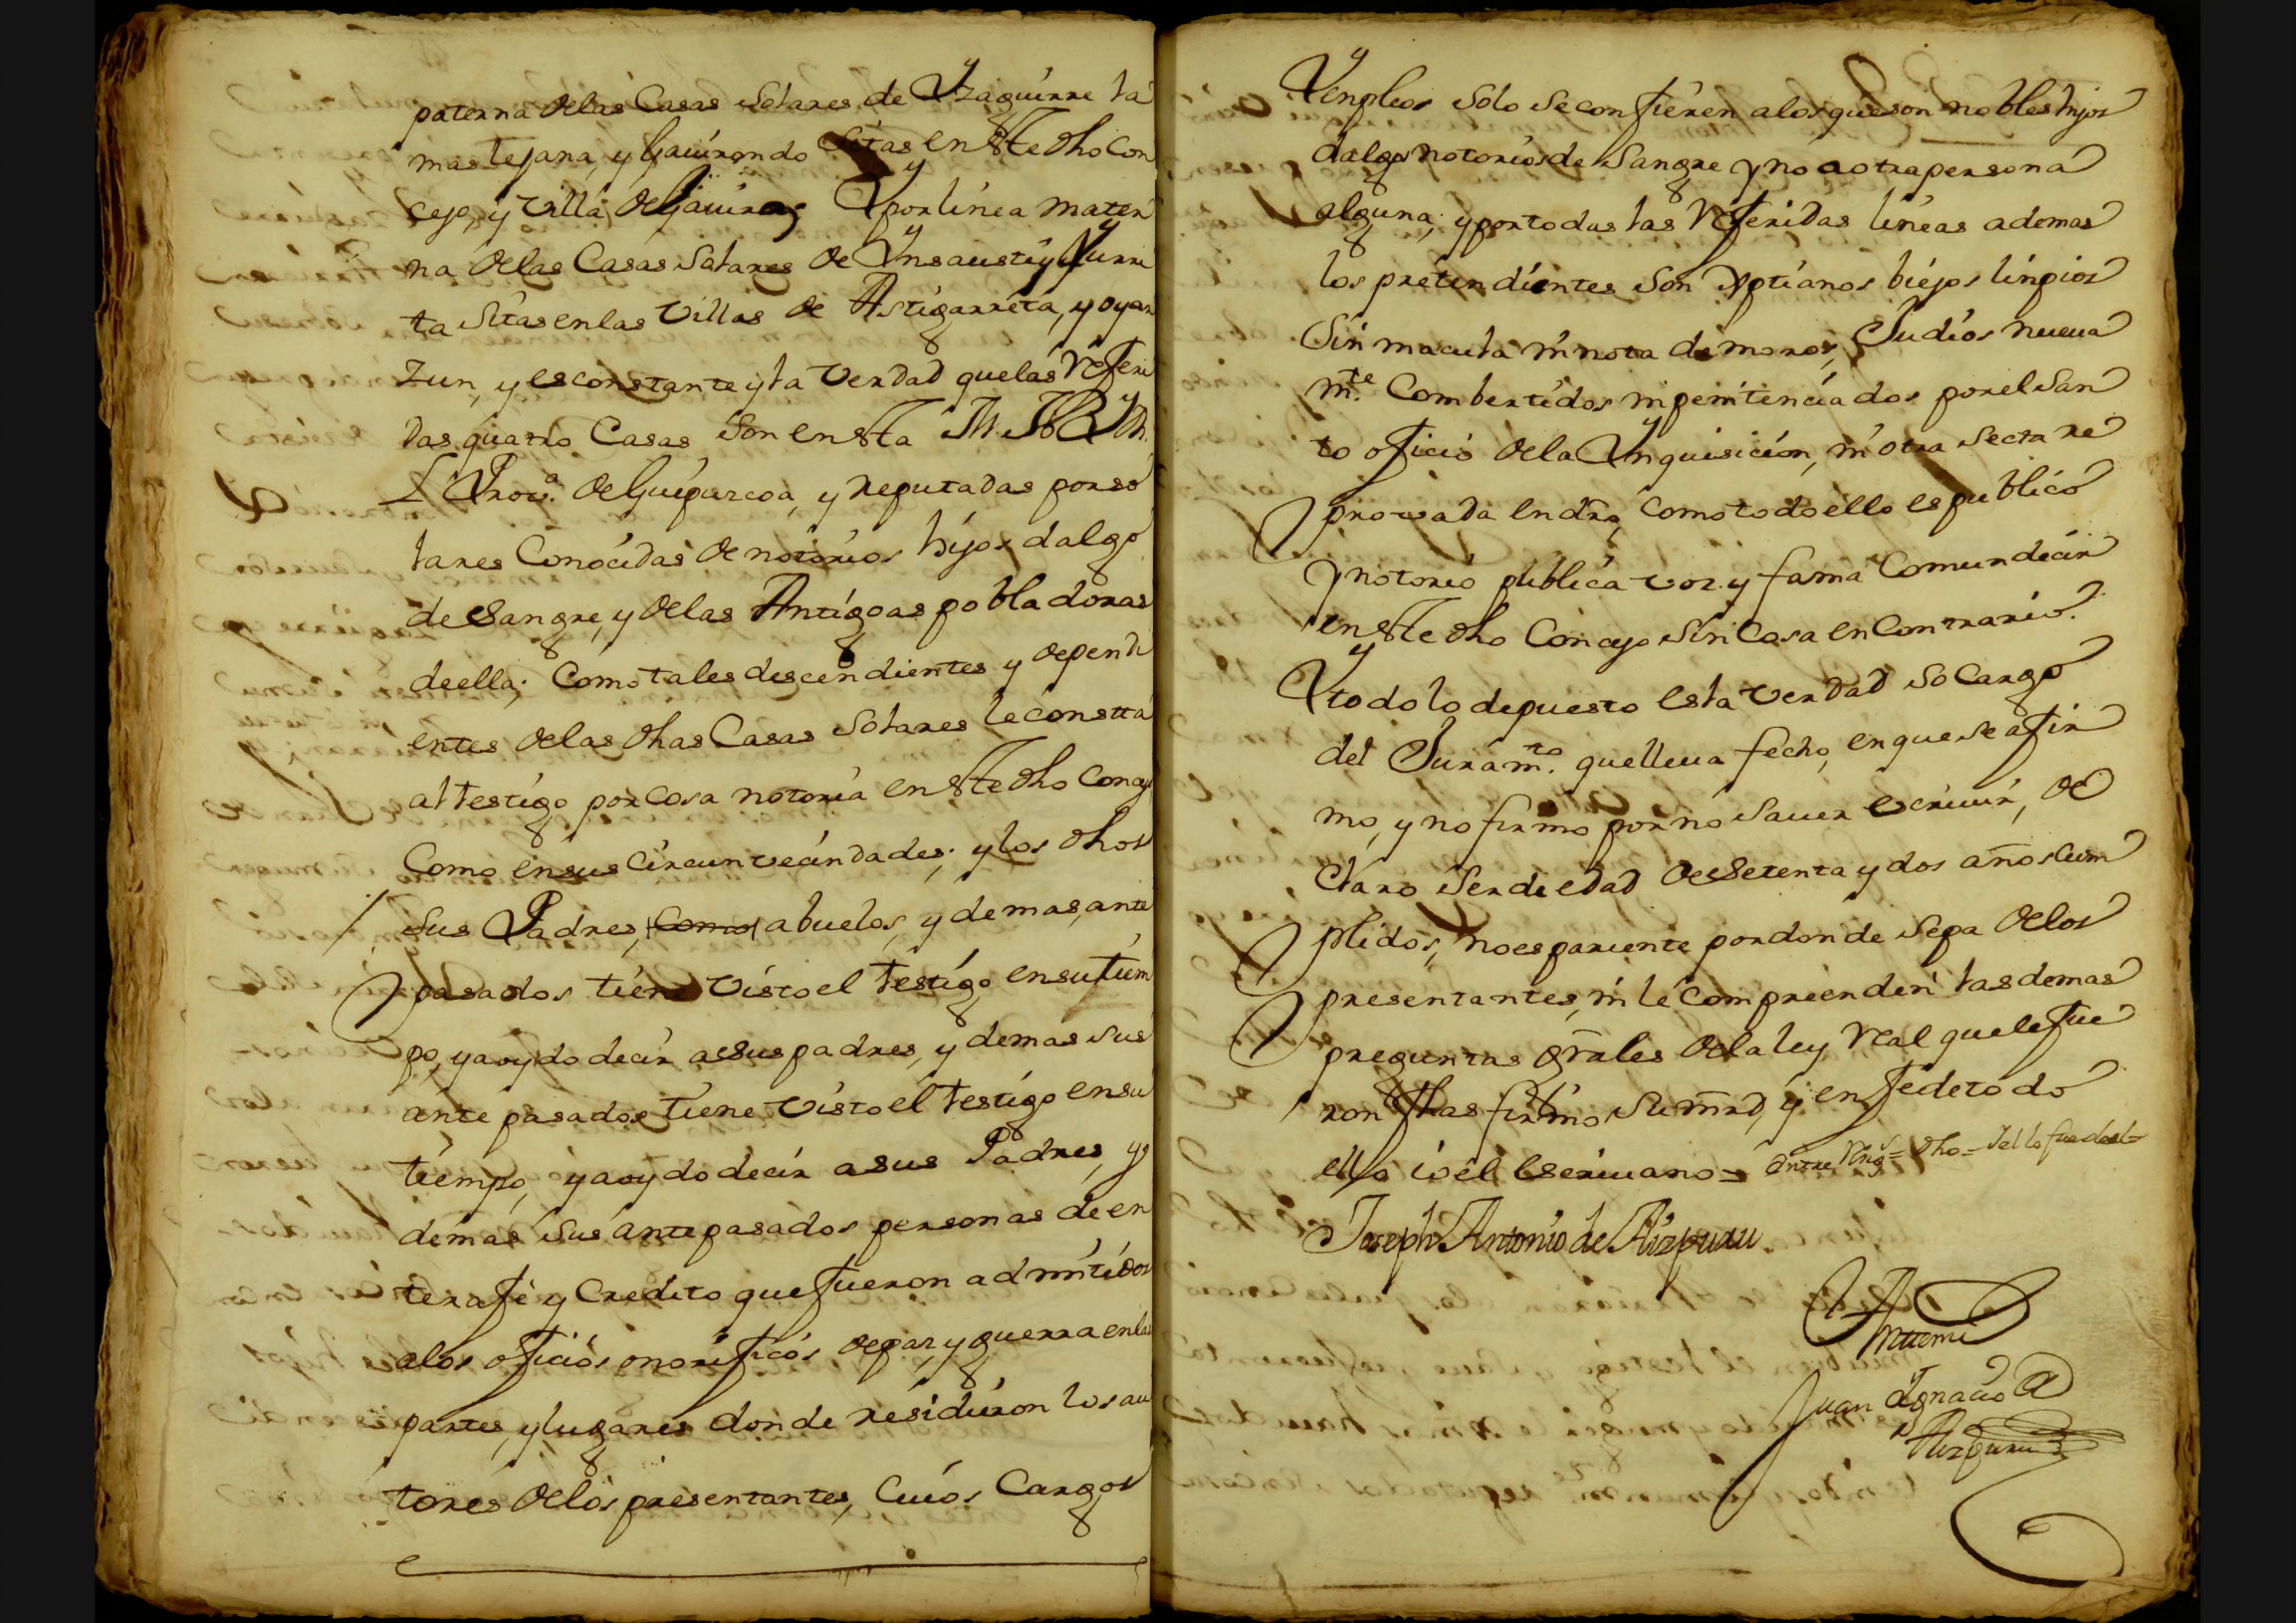 paterna de las Casas Solares de Yzaguirre la
mas lejana, y Gauirondo sitas en este dho Con
cejo, y villa de Gauiria; Y por linea mater
na de las Casas Solares de Ynsausti y Yurri
ta sitas en las villas de Astigarreta, y oyar
zun, y es constante y la verdad que las referi
das quatro Casas son en esta M. N. Y M.
L. Prova. de Guipuzcoa, y reputadas por so
lares Conocidas de notorios hijos dalgo
de sangre, y de las Antigoas pobladoras
de ella; Como tales descendientes y dependi
entes de las dhas Casas Solares le consta
al testigo por cosa notoria en este dho Concejo
Como en sus circunvecindades; y los dhos
sus Padres, Como abuelos, y demas, ante
pasados tiene visto el testigo en su tiem
po, y a oydo decir a sus padres, y demas sus
ante pasados tiene visto el testigo en su
tiempo, y a oydo decir a sus Padres, y
demas sus antepasados personas de en
tera fe y Credito que fueron admitidos
a los oficios onorificos de paz, y guerra en las
partes, y lugares donde residieron los au
tores de los presentantes, Cuios Cargos
Y enpleos solo se confieren a los que son nobles hijos
dalgo notorios de Sangre y no a otra persona
alguna; y por todas las referidas lineas ademas
los pretendientes son Xptianos biejos linpios
Sin macula ni nota de moros, Judios nueua
mte. Combertidos ni penitenciados por el San
to oficio de la Ynquisicion, ni otra secta re
provada en dro, como todo ello es publico
y notorio publica voz y fama Comun decir
en este dho Concejo sin Cosa en Contrario.
Y todo lo depuesto es la verdad so cargo
del Juramto. que lleua fecho, en que se afir
mo, y no firmo por no sauer escriuir, de
claro ser de edad de setenta y dos años cum
plidos, no es pariente por donde sepa de los
presentantes, ni le compreenden las demas
preguntas grales de la ley Real que le fue
ron fhas firmo su mrd, y en fe de todo
ello io el escriuano = Entre Rengs = dho =
Joseph Antonio de Aizpuru
Ante mi
Juan Ygnacio de
Aizpuru